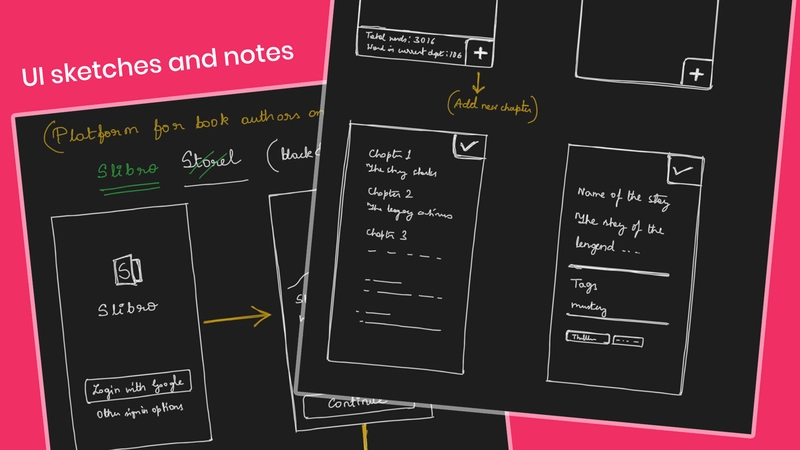 UI sketches and notes
(Platform for book authors
Slibro Storel (black
S
Slibro
Login with Google
Other signin options
Continue
Total words: 3016
+
(Add new chapter)
✓
Chapter 1
The story starts
Chapter 2
The legacy
Chapter 3
+
✓
Name of the story
The story of the
lengend ---
Tags